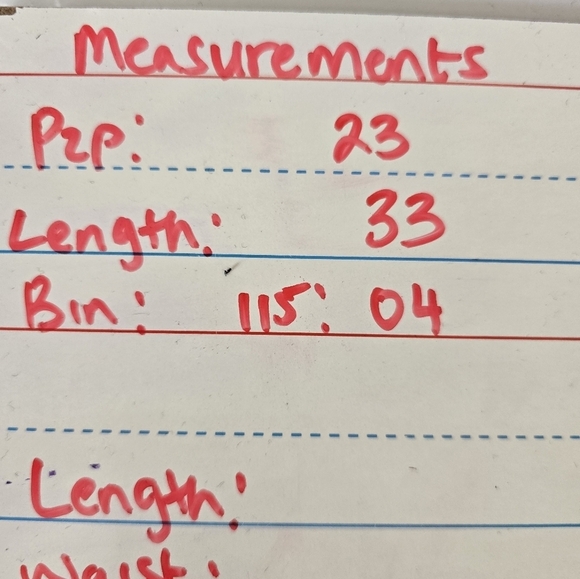 Measurements
P2P: 23
Length: 33
Bin: 115: 04
Length:
Waist: